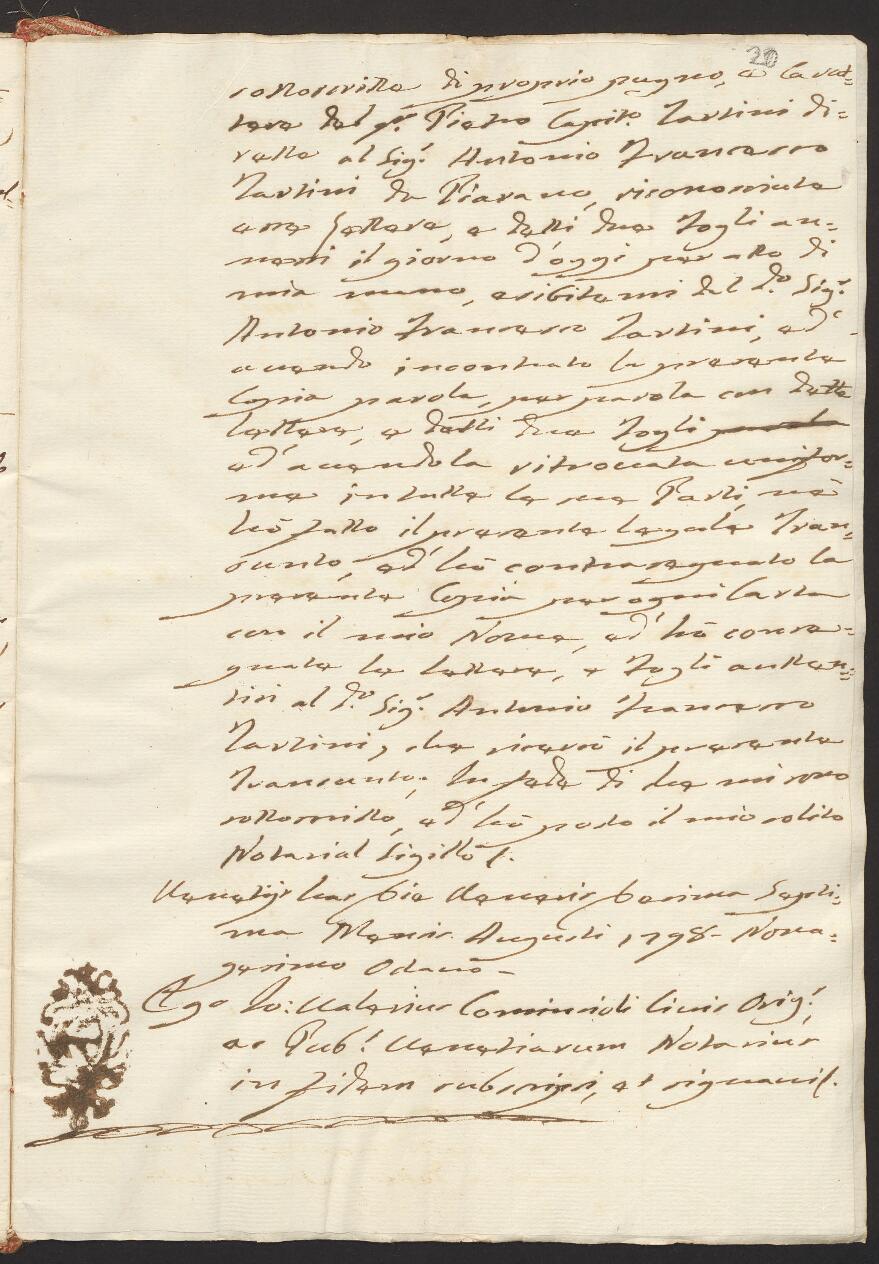 20
sottoscritte di proprio pugno, e Carat=
tere del qm. Pietro Capit.o Tartini di=
rette al Sig.r Antonio Francesco
Tartini da Piravano, riconosciute
esse Lettere, e detti due Fogli an=
nessi il giorno d'oggi per atto di
mia mano, esibitemi dal d.o Sig.r
Antonio Francesco Tartini, ed'
avendo incontrato la presente
Copia parola, per parola con dette
Lettere, e detti due Fogli
ed' avendola ritrovata unifor=
me in tutte le sue Parti, nè
hò fatto il presente legale Tran=
sunto, ed' hò contrasegnato la
presente Copia per ogni Carta
con il mio Nome, ed' hò conse=
gnate le Lettere, e Fogli auten=
tici al d.o Sig.r Antonio Francesco
Tartini, che ricercò il presente
Transunto; In fede di che mi sono
sottoscritto, ed' hò posto il mio solito
Notarial Sigillo f.
Venetijs hac Die Veneris Decima Septi=
ma Mensis Augusti 1798 - Nona=
gesimo Octavo -
Ego Jo: Valerius Comincioli Civis Orig.s
ac Pub.s Venetiarum Notarius
in fidem subscripsi, et signavi f.